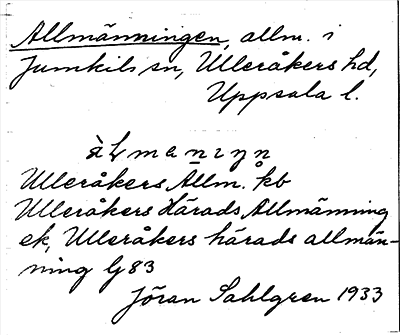 Allmänningen, allm. i
Jumkils sn, Ulleråkers hd,
Uppsala l.
Ulleråkers Allm. kb
Ulleråkers Härads Allmänning
ek, Ulleråkers härads allmän-
ning Gj 83
Jöran Sahlgren 1933